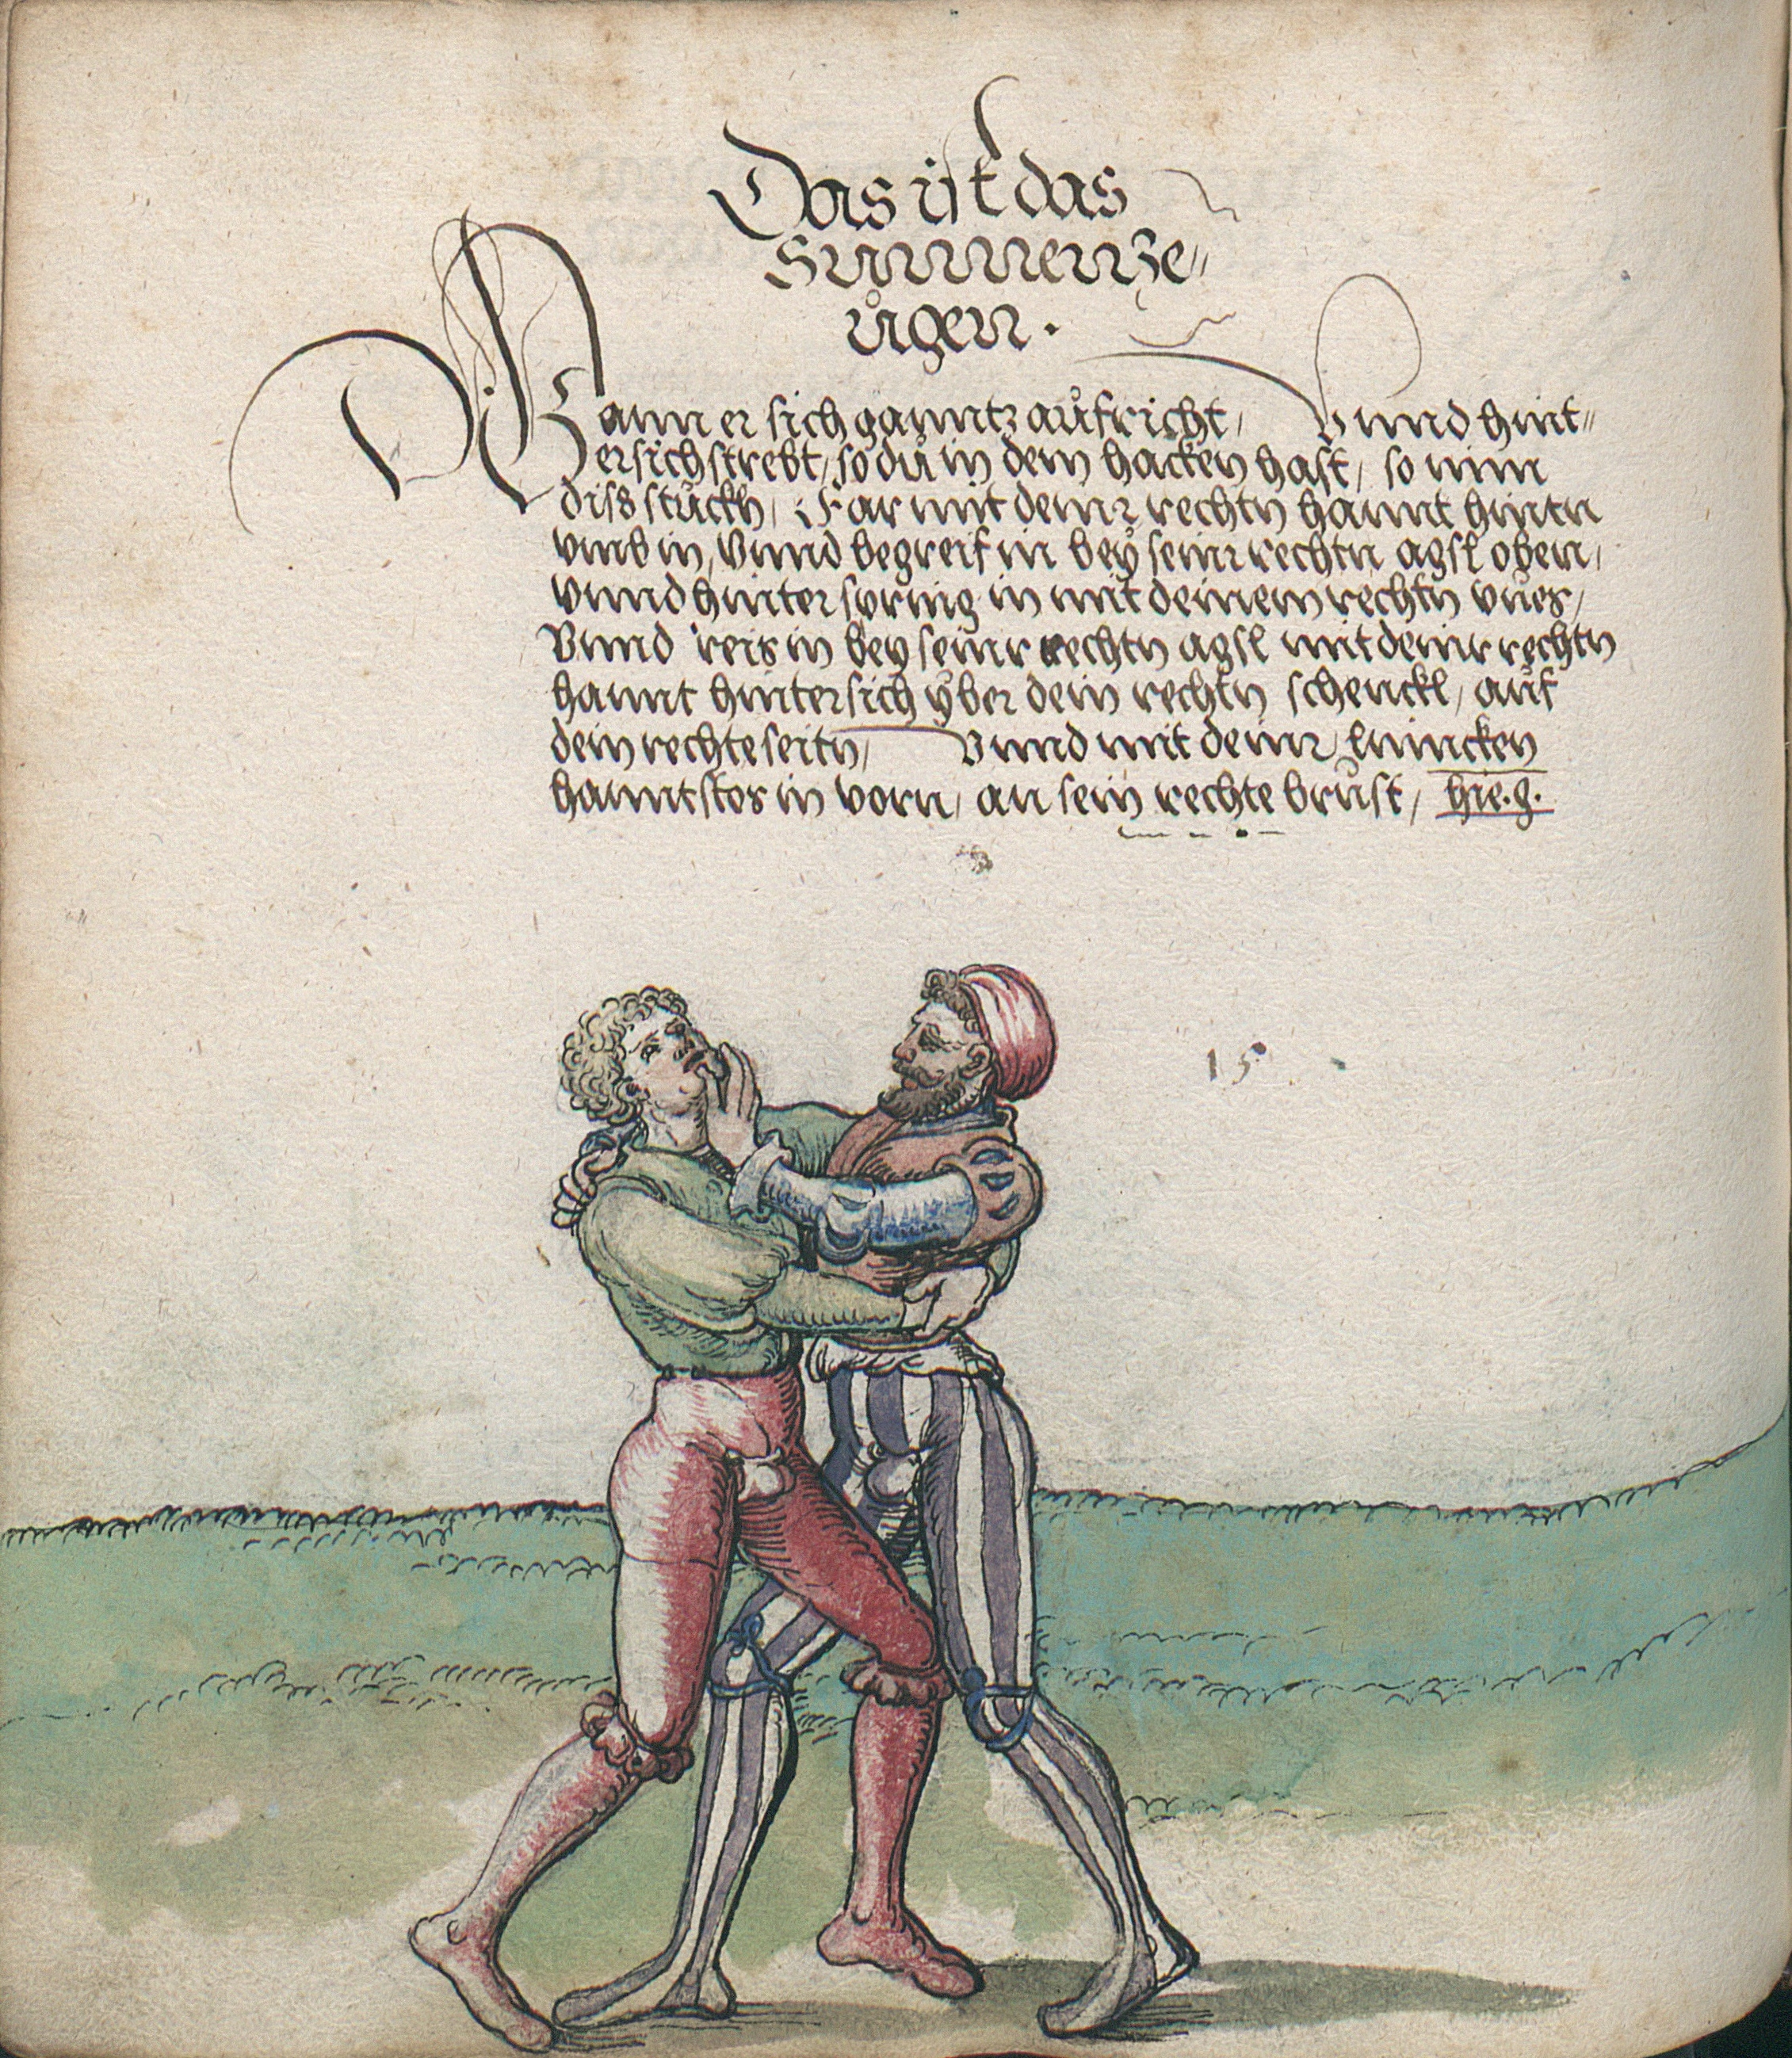 Das ist das
Sunnenze„
ůgen.
Wann er sich ganntz aůfricht, Vnnd hint„
ersich strebt, so dů in dem hacken hast, so nim
diss stůckh, Far mit deinr rechtn hannt hintn
vmb in, Vnnd begreif in beÿ seinr rechtn agsl oben,
vnnd hinterspring in mit deinem rechtn vůes,
Vnnd reis in bey seinr rechtn agsl mit deinr rechtn
hannt hintersich ÿber dein rechtn schenckl, aůf
dein rechte seitn, Vnnd mit deinr linncken
hannt stos in vorn, an sein rechte brůst, hie.g.
15